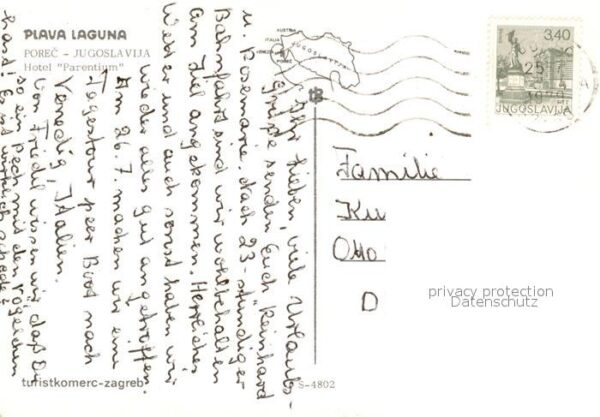 PLAVA LAGUNA
POREČ - JUGOSLAVIJA
Hotel "Parentium"
AUSTRIA
ITALIA
VENEZIA
POREČ
JUGOSLAVIJA
3,40
25
JUGOSLAVIJA
Ihr Lieben, viele Urlaubs-
grüße senden Euch Reinhard
u. Rosemarie. Nach 23-stündiger
Bahnfahrt sind wir wohlbehalten
am Ziel angekommen. Herrliches
Wetter und auch sonst haben wir
wieder alles gut angetroffen.
Am 26.7. machen wir eine
Tagestour per Boot nach
Venedig, Italien.
Von Friedel wissen wir, daß Du
so ein Pech mit den Vögelchen
hast! Es ist wirklich schade!
Familie
Ku
Otto
D
privacy protection
Datenschutz
turistkomerc-zagreb
S-4802